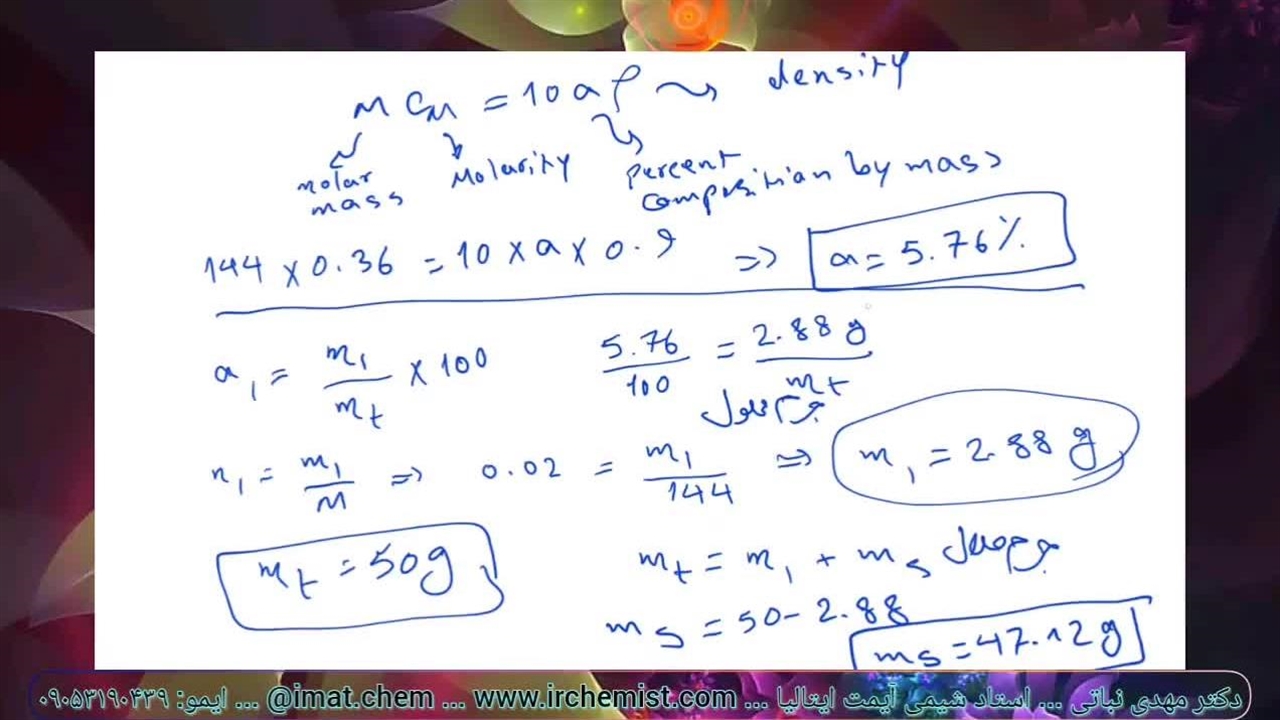 M CM = 10 a ρ → density
molar mass
Molarity
Percent composition by mass
144 × 0.36 = 10 × a × 0.9 ⇒ a = 5.76%
a₁ = m₁/mₜ × 100
5.76/100 = 2.88 g/mₜ
جرم محلول
n₁ = m₁/M ⇒ 0.02 = m₁/144 ⇒ m₁ = 2.88 g
mₜ = 50g
mₜ = m₁ + mₛ
mₛ = 50 - 2.88
mₛ = 47.12g
دکتر مهدی نباتی ... استاد شیمی آیمت ایتالیا ... www.irchemist.com ... @imat.chem ... ایمو: ۰۹۰۵۳۱۹۰۴۳۹